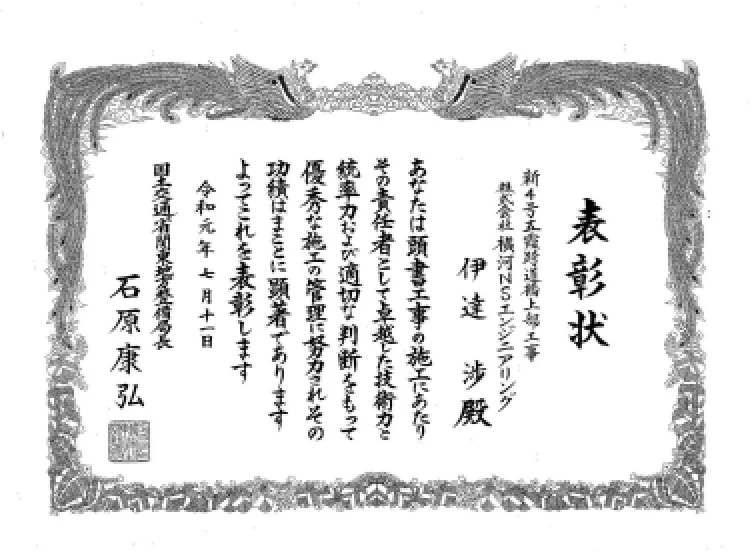 表彰状
新4号五霞跨道橋上部工事
株式会社 横河NSエンジニアリング
伊達 渉 殿
あなたは頭書工事の施工にあたり
その責任者として卓越した技術力と
統率力および適切な判断をもって
優秀な施工の管理に努力されその
功績はまことに顕著であります
よってこれを表彰します
令和元年七月十一日
国土交通省関東地方整備局長
石原康弘